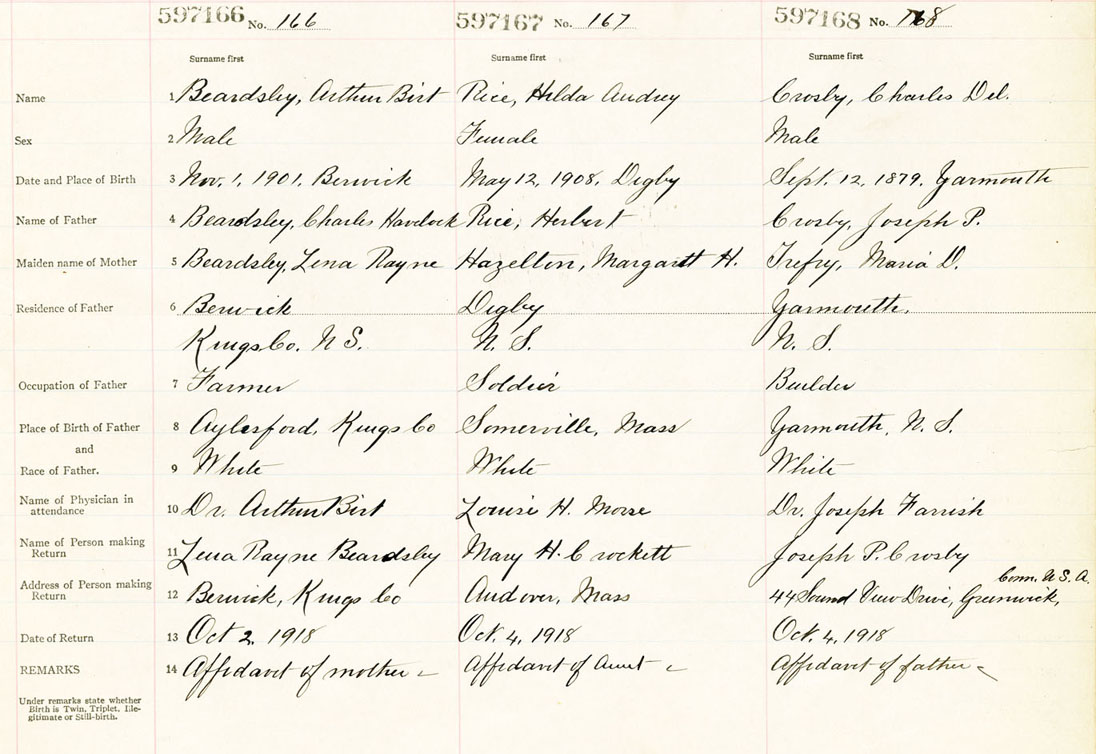 597166 No. 166 597167 No. 167 597168 No. 168
Surname first Surname first Surname first
Name 1 Beardsley, Arthur Birt Rice, Hilda Audrey Crosby, Charles Del.
Sex 2 Male Female Male
Date and Place of Birth 3 Nov. 1, 1901, Berwick May 12, 1908, Digby Sept. 12, 1879, Yarmouth
Name of Father 4 Beardsley, Charles Havelock Rice, Herbert Crosby, Joseph P.
Maiden name of Mother 5 Beardsley, Lena Rayne Hazelton, Margarett H. Trefry, Maria D.
Residence of Father 6 Berwick Digby Yarmouth.
Kings Co. N S. N. S. N. S.
Occupation of Father 7 Farmer Soldier Builder
Place of Birth of Father 8 Aylesford, Kings Co Somerville, Mass Yarmouth, N. S.
and
Race of Father. 9 White White White
Name of Physician in
attendance 10 Dr. Arthur Birt Louise H. Morse Dr. Joseph Farrish
Name of Person making
Return 11 Lena Rayne Beardsley Mary H. Crockett Joseph P. Crosby
Conn. U S. A.
Address of Person making
Return 12 Berwick, Kings Co Andover, Mass 44 Sound View Drive, Greenwick,
Date of Return 13 Oct 2, 1918 Oct. 4, 1918 Oct. 4, 1918
REMARKS 14 Affidavit of mother - Affidavit of Aunt - Affidavit of father -
Under remarks state whether
Birth is Twin, Triplet, Ille-
gitimate or Still-birth.